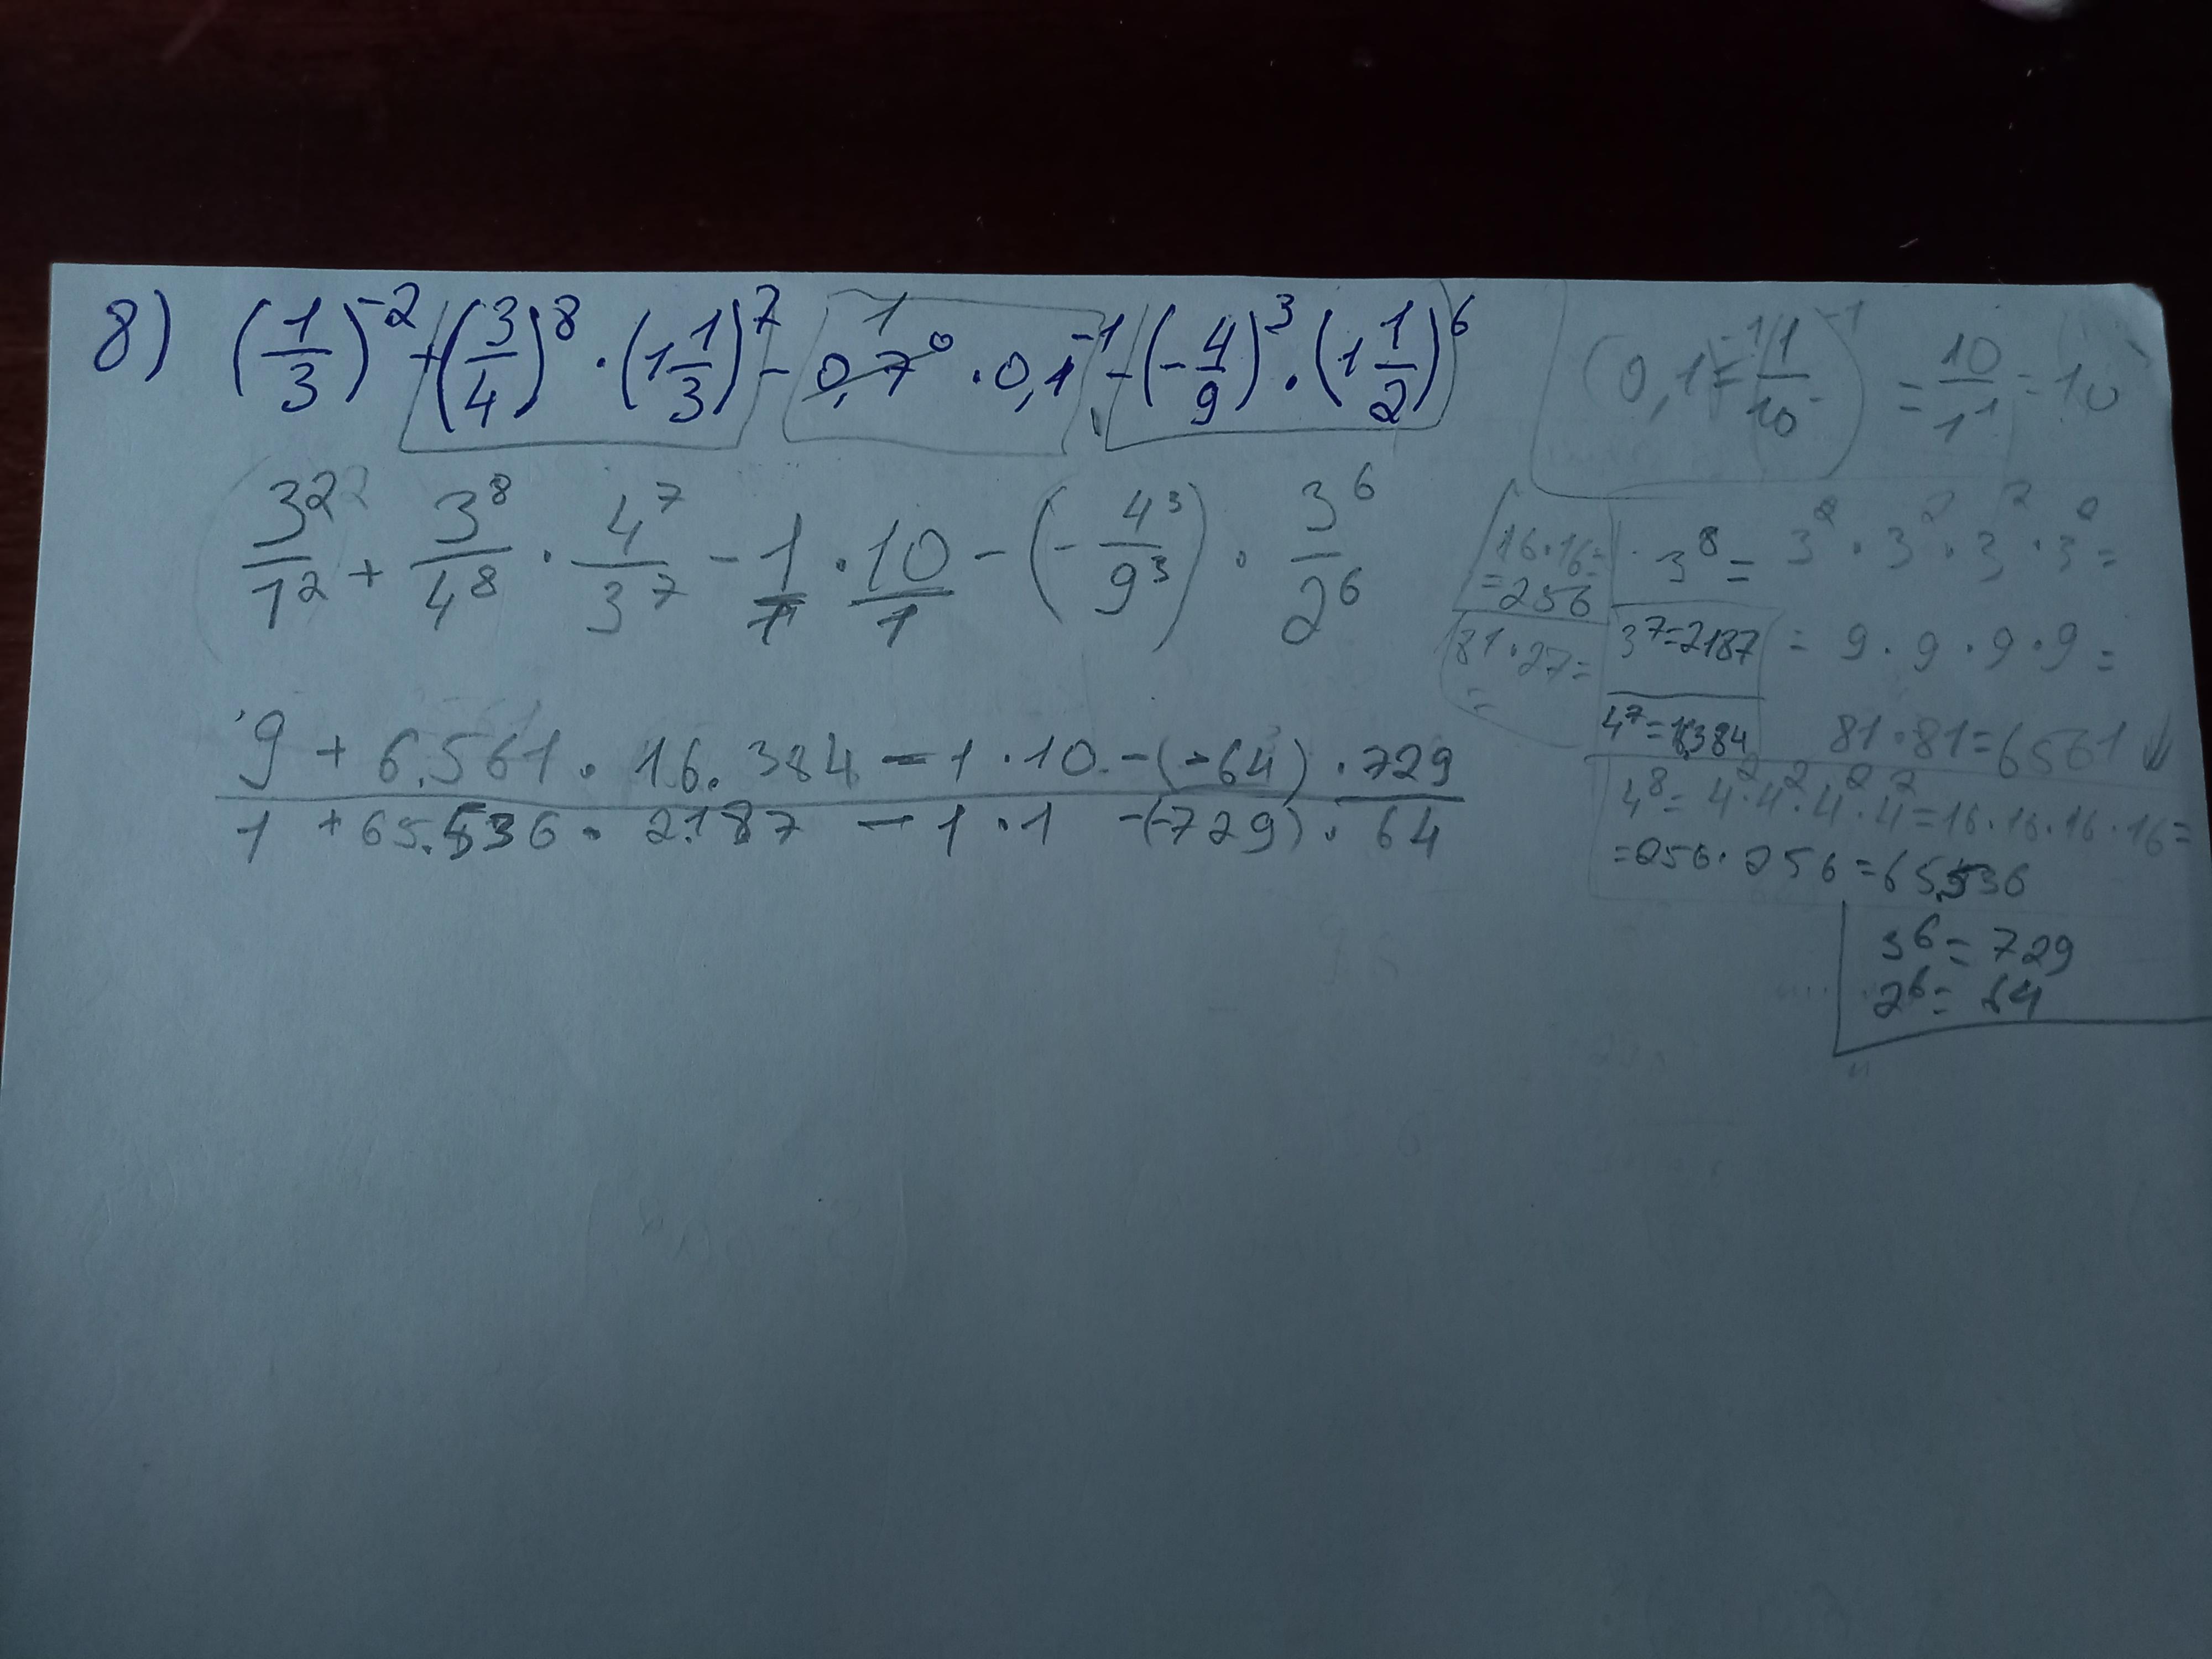 8) (1/3)^-2 + (3/4)^8 · (1 1/3)^7 - 0,7^0 · 0,1^-1 - (-4/9)^3 · (1 1/2)^6
1
(0,1)^-1 = (1/10)^-1 = 10/1^1 = 10
3^2/1^2 + 3^8/4^8 · 4^7/3^7 - 1/1 · 10/1 - (-4^3/9^3) · 3^6/2^6
16·16=
=256
3^8 = 3^2 · 3^2 · 3^2 · 3^2 =
81·27=
=
3^7=2187
= 9 · 9 · 9 · 9 =
4^7=16384
81·81=6561
9 + 6.561 · 16.384 - 1 · 10 - (-64) · 729
1 + 65.536 · 2.187 - 1 · 1 - (-729) · 64
4^8 = 4^2·4^2·4^2·4^2=16·16·16·16=
=256·256=65.536
3^6= 729
2^6= 64